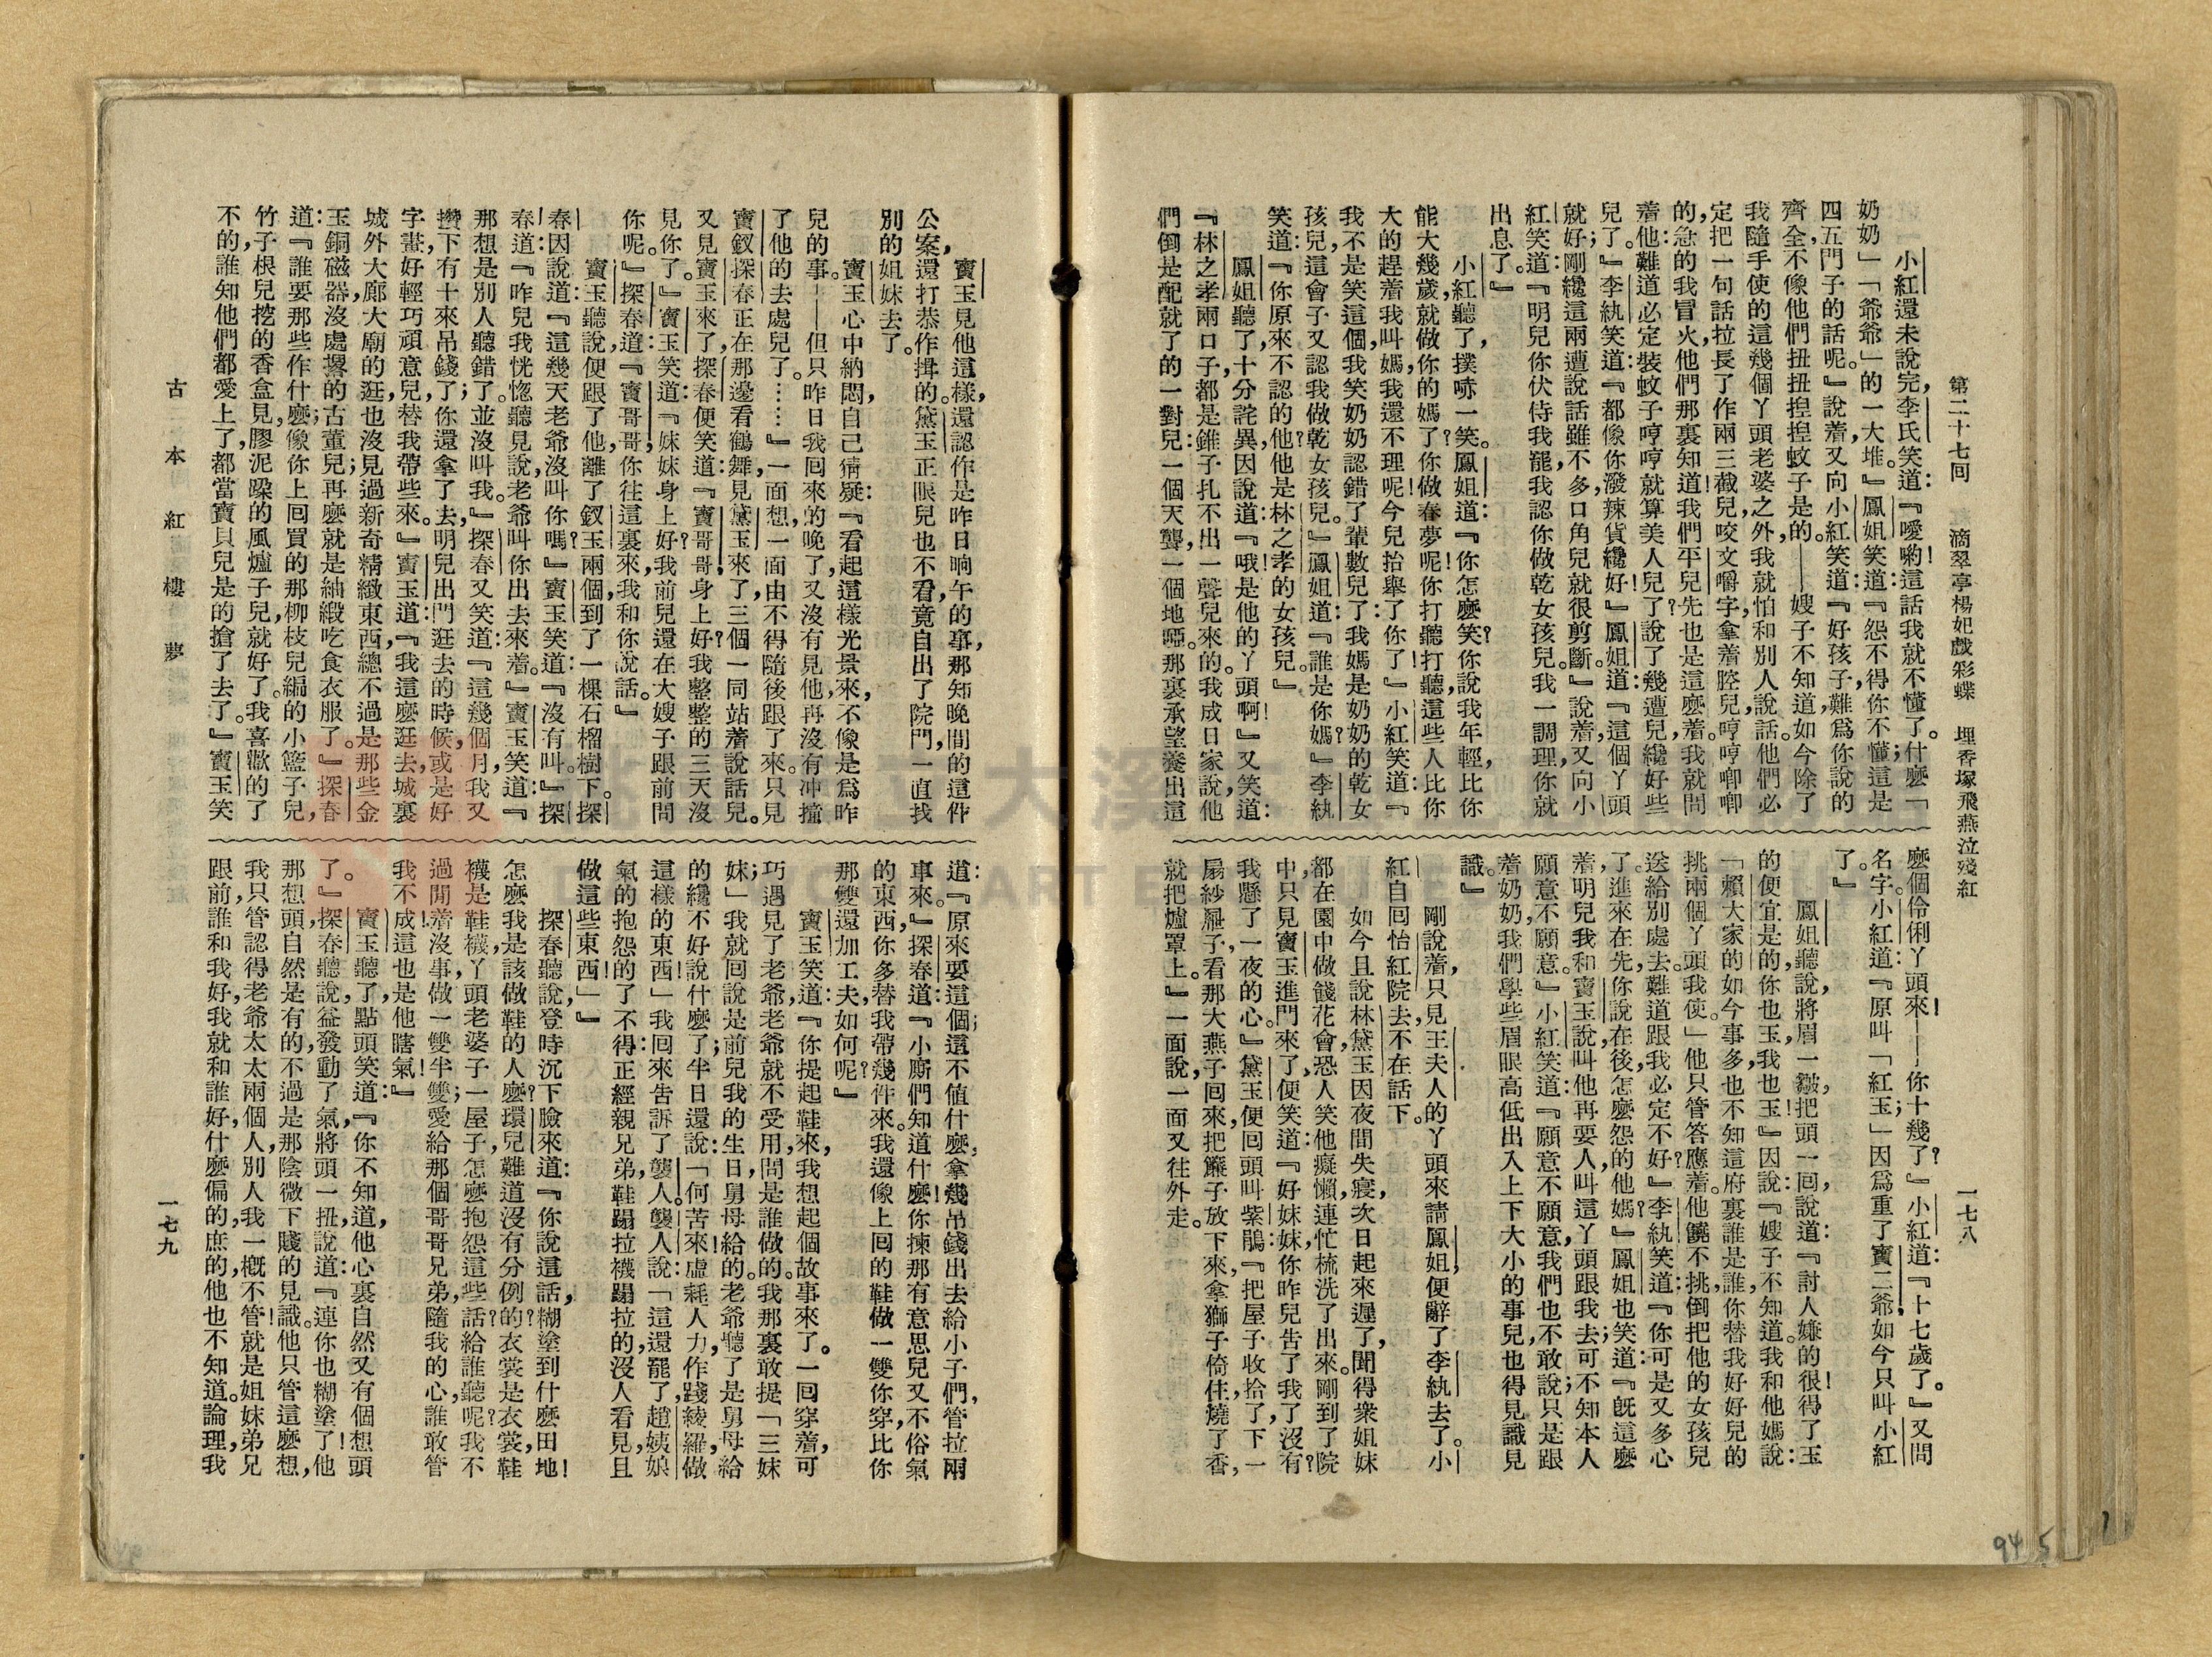 第二十七回　滴翠亭楊妃戲彩蝶　埋香塚飛燕泣殘紅
一七八
小紅還未說完，李氏笑道：『噯喲！這話我就不懂了。什麼「
奶奶」「爺爺」的一大堆。』鳳姐笑道：『怨不得你不懂；這是
四五門子的話呢。』說着，又向小紅笑道：『好孩子，難爲你說的
齊全，不像他們扭扭揑揑蚊子是的。——嫂子不知道，如今除了
我隨手使的這幾個丫頭老婆之外，我就怕和別人說話。他們必
定把一句話拉長了，作兩三截兒，咬文嚼字，拿着腔兒，哼哼唧唧
的，急的我冒火，他們那裏知道！我們平兒先也是這麼着。我就問
着他：難道必定裝蚊子哼哼，就算美人兒了？說了幾遭兒纔好些
兒了。』李紈笑道：『都像你潑辣貨纔好！』鳳姐道：『這個丫頭
就好；剛纔這兩遭說話雖不多，口角兒就很剪斷。』說着，又向小
紅笑道：『明兒你伏侍我罷，我認你做乾女孩兒。我一調理，你就
出息了。』
小紅聽了，撲哧一笑。鳳姐道：『你怎麼笑？你說我年輕，比你
能大幾歲，就做你的媽了？你做春夢呢！你打聽打聽，這些人比你
大的趕着我叫媽，我還不理呢！今兒抬舉了你了！』小紅笑道：『
我不是笑這個，我笑奶奶認錯了輩數兒了：我媽是奶奶的乾女
孩兒，這會子又認我做乾女孩兒。』鳳姐道：『誰是你媽？』李紈
笑道：『你原來不認的他？他是林之孝的女孩兒。』
鳳姐聽了，十分詫異，因說道：『哦！是他的丫頭啊！』又笑道：
『林之孝兩口子，都是錐子扎不出一聲兒來的。我成日家說，他
們倒是配就了的一對兒：一個天聾，一個地啞。那裏承望養出這
麼個伶俐丫頭來！——你十幾了？』小紅道：『十七歲了。』又問
名字。小紅道：『原叫「紅玉；」因爲重了寶二爺，如今只叫小紅
了。』
鳳姐聽說，將眉一皺，把頭一回，說道：『討人嫌的很！得了玉
的便宜是的，你也玉，我也玉！』因說：『嫂子不知道。我和他媽說：
「賴大家的如今事多，也不知這府裏誰是誰，你替我好好兒的
挑兩個丫頭我使。」他只管答應着。他饒不挑，倒把他的女孩兒
送給別處去。難道跟我必定不好？』李紈笑道：『你可是又多心
了。進來在先，你說在後，怎麼怨的他媽？』鳳姐也笑道：『旣這麼
着，明兒我和寶玉說，叫他再要人，叫這丫頭跟我去；可不知本人
願意不願意。』小紅笑道：『願意不願意，我們也不敢說；只是跟
着奶奶，我們學些眉眼高低，出入上下，大小的事兒，也得見識見
識。』
剛說着，只見王夫人的丫頭來請，鳳姐便辭了李紈去了。小
紅自回怡紅院去，不在話下。
如今且說林黛玉因夜間失寢，次日起來遲了，聞得衆姐妹
都在園中做餞花會，恐人笑他癡懶，連忙梳洗了出來。剛到了院
中，只見寶玉進門來了，便笑道：『好妹妹，你昨兒告了我了沒有？
我懸了一夜的心。』黛玉便回頭叫紫鵑：『把屋子收拾了，下一
扇紗屜子，看那大燕子回來，把簾子放下來，拿獅子倚住，燒了香，
就把爐罩上。』一面說，一面又往外走。
寶玉見他這樣，還認作是昨日晌午的事，那知晚間的這件
公案，還打恭作揖的。黛玉正眼兒也不看，竟自出了院門，一直找
別的姐妹去了。
寶玉心中納悶，自己猜疑：『看起這樣光景來，不像是爲昨
兒的事。——但只昨日我回來的晚了，又沒有見他，再沒有冲撞
了他的去處兒了。……』一面想，一面由不得隨後跟了來。只見
寶釵探春正在那邊看鶴舞，見黛玉來了，三個一同站着說話兒。
又見寶玉來了，探春便笑道：『寶哥哥，身上好？我整整的三天沒
見你了。』寶玉笑道：『妹妹身上好？我前兒還在大嫂子跟前問
你呢。』探春道：『寶哥哥，你往這裏來，我和你說話。』
寶玉聽說，便跟了他，離了釵玉兩個，到了一棵石榴樹下。探
春因說道：『這幾天老爺沒叫你嗎？』寶玉笑道：『沒有叫。』探
春道：『昨兒我恍惚聽見說，老爺叫你出去來着。』寶玉笑道：『
那想是別人聽錯了。並沒叫我。』探春又笑道：『這幾個月，我又
攢下有十來吊錢了；你還拿了去，明兒出門逛去的時候，或是好
字畫，好輕巧頑意兒，替我帶些來。』寶玉道：『我這麼逛去，城裏
城外大廊大廟的逛，也沒見過新奇精緻東西，總不過是那些金
玉銅磁器，沒處撂的古董兒；再麼就是紬緞吃食衣服了。』探春
道：『誰要那些作什麼；像你上回買的那柳枝兒編的小籃子兒，
竹子根兒挖的香盒兒，膠泥跺的風爐子兒，就好了。我喜歡的了
不的，誰知他們都愛上了，都當寶貝兒是的搶了去了。』寶玉笑
道：『原來要這個；這不值什麼，拿幾吊錢出去給小子們，管拉兩
車來。』探春道：『小廝們知道什麼！你揀那有意思兒又不俗氣
的東西，你多替我帶幾件來。我還像上回的鞋做一雙你穿，比你
那雙還加工夫，如何呢？』
寶玉笑道：『你提起鞋來，我想起個故事來了。一回穿着，可
巧遇見了老爺，老爺就不受用，問是誰做的。我那裏敢提「三妹
妹；」我就回說是前兒我的生日，舅母給的。老爺聽了是舅母給
的，纔不好說什麼了；半日還說：「何苦來！虛耗人力，作踐綾羅，做
這樣的東西！」我回來告訴了襲人。襲人說：「這還罷了，趙姨娘
氣的抱怨的了不得：正經親兄弟，鞋蹋拉襪蹋拉的，沒人看見，且
做這些東西！」』
探春聽說，登時沉下臉來，道：『你說這話，糊塗到什麼田地！
怎麼我是該做鞋的人麼？環兒難道沒有分例的？衣裳是衣裳，鞋
襪是鞋襪，丫頭老婆子一屋子，怎麼抱怨這些話？給誰聽呢？我不
過閒着沒事，做一雙半雙；愛給那個哥哥兄弟，隨我的心，誰敢管
我不成！這也是他瞎氣！』
寶玉聽了，點頭笑道：『你不知道，他心裏自然又有個想頭
了。』探春聽說，益發動了氣，將頭一扭，說道：『連你也糊塗了！他
那想頭自然是有的，不過是那陰微下賤的見識。他只管這麼想，
我只管認得老爺太太兩個人，別人我一槪不管！就是姐妹弟兄
跟前，誰和我好，我就和誰好，什麼偏的，庶的，他也不知道。論理，我
古本紅樓夢
一七九
94 5